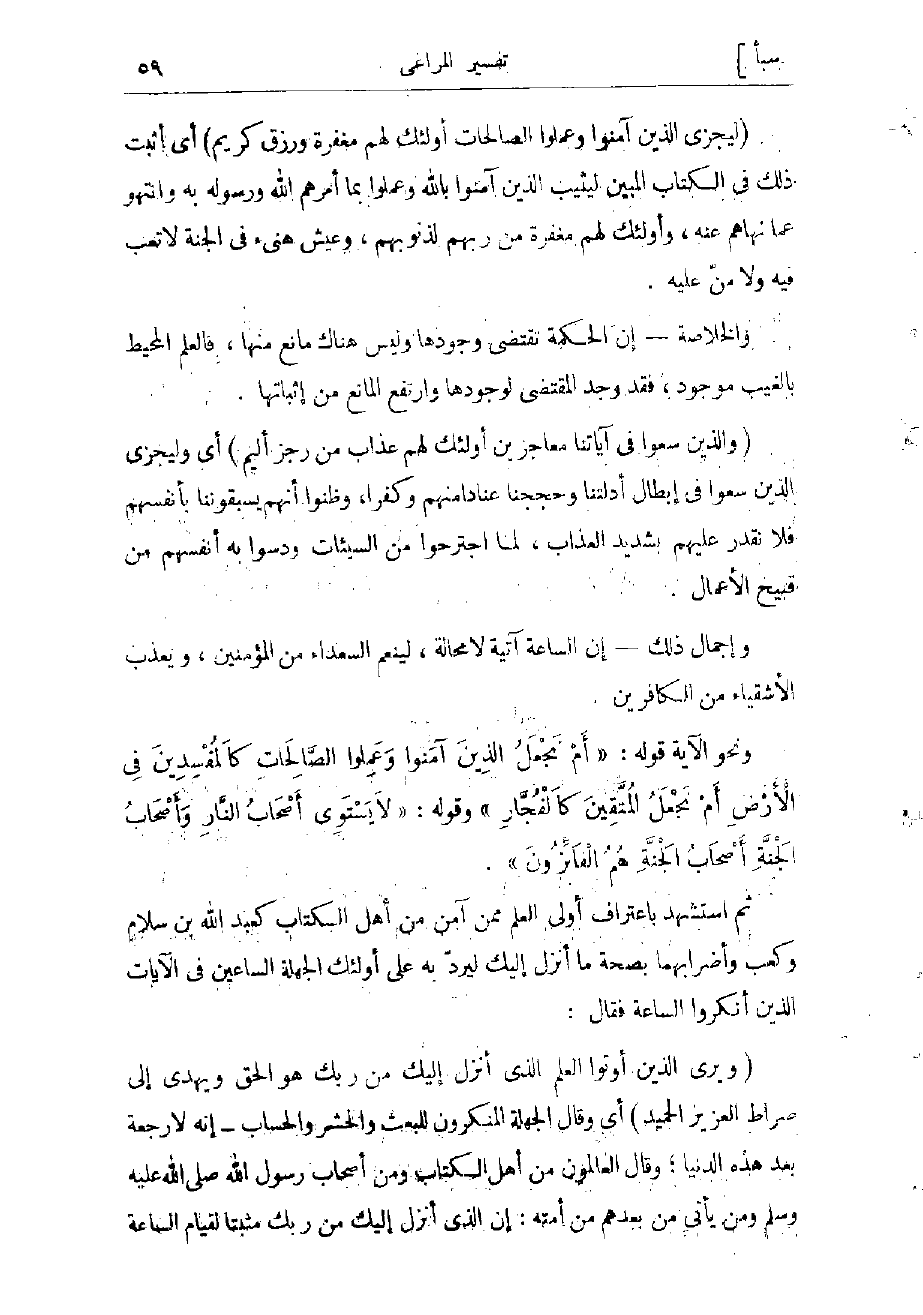 سبأ ]
تفسير المراغى
٥٩
(ليجزى الذين آمنوا وعملوا الصالحات أولئك لهم مغفرة ورزق كريم) أى أثبت
ذلك فى الكتاب المبين ليثيب الذين آمنوا بالله وعملوا بما أمرهم الله ورسوله به وانتهو
عما نهاهم عنه ، وأولئك لهم مغفرة من ربهم لذنوبهم ، وعيش هنىء فى الجنة لا تعب
فيه ولا منّ عليه .
والخلاصة — إن الحكمة تقتضى وجودها وليس هناك مانع منها ، فالعلم المحيط
بالغيب موجود ، فقد وجد المقتضى لوجودها وارتفع المانع من إثباتها .
( والذين سعوا فى آياتنا معاجزين أولئك لهم عذاب من رجز أليم ) أى وليجزى
الذين سعوا فى إبطال أدلتنا وحججنا عنادا منهم وكفرا، وظنوا أنهم يسبقوننا بأنفسهم
فلا نقدر عليهم بشديد العذاب ، لما اجترحوا من السيئات ودسوا به أنفسهم من
قبيح الأعمال .
وإجمال ذلك — إن الساعة آتية لا محالة ، لينعم السعداء من المؤمنين ، ويعذب
الأشقياء من الكافرين .
ونحو الآية قوله : « أَمْ نَجْعَلُ الذِينَ آمَنُوا وَعَمِلوا الصَّالِحَاتِ كالمُفْسِدِينَ فِى
الْأَرْضِ أَمْ نَجْعَلُ المُتَّقِينَ كالْفُجَّارِ » وقوله : « لاَ يَسْتَوِى أَصْحَابُ النَّارِ وَأَصْحَابُ
الجَنَّةِ أَصحَابُ الجَنَّةِ هُمُ الْفَائِزُونَ » .
ثم استشهد باعتراف أولى العلم ممن آمن من أهل الكتاب كعبد الله بن سلام
وكعب وأضرابهما بصحة ما أنزل إليك ليردّ به على أولئك الجهلة الساعين فى الآيات
الذين أنكروا الساعة فقال :
( ويرى الذين أوتوا العلم الذى أنزل إليك من ربك هو الحق ويهدى إلى
صراط العزيز الحميد ) أى وقال الجهلة المنكرون للبعث والحشر والحساب ــ إنه لا رجعة
بعد هذه الدنيا ؛ وقال العالمون من أهل الكتاب ومن أصحاب رسول الله صلى الله عليه
وسلم ومن يأتى من بعدهم من أمته : إن الذى أنزل إليك من ربك مثبتا لقيام الساعة